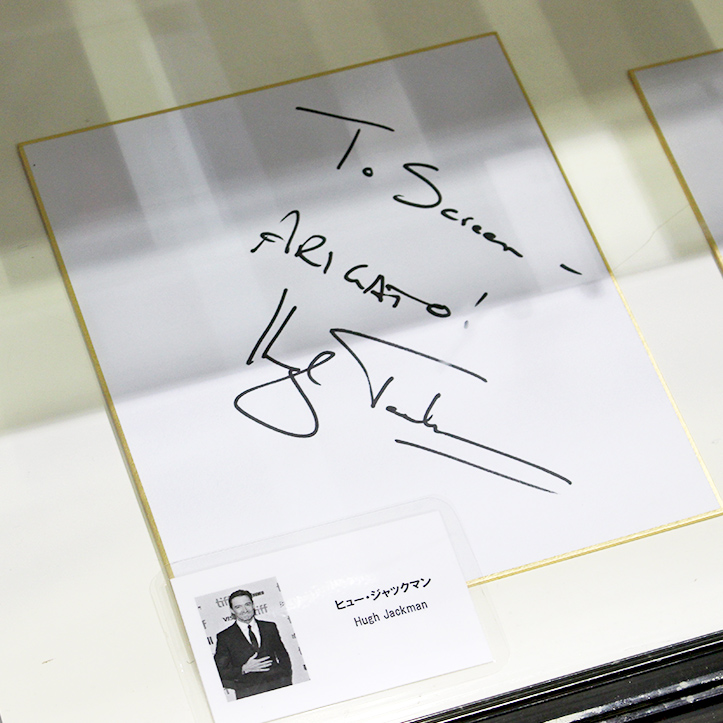 To Screen -
ARIGATO!
Hugh Jackman
ヒュー・ジャックマン
Hugh Jackman
tiff
tiff